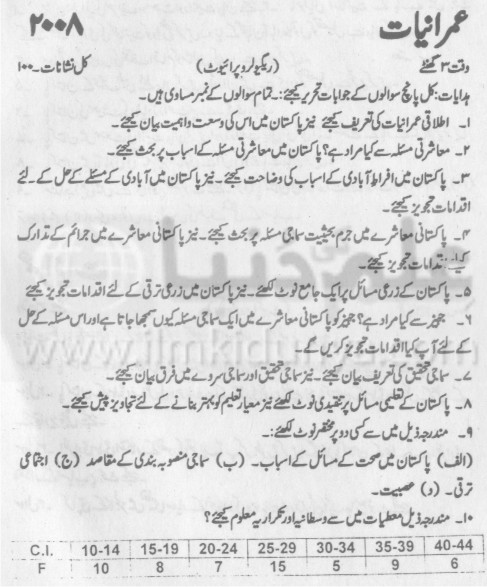 عمرانیات ۲۰۰۸
وقت ۳ گھنٹے (ریگولر و پرائیوٹ) کل نشانات۔ ۱۰۰
ہدایات: کل پانچ سوالوں کے جوابات تحریر کیجئے۔ تمام سوالوں کے نمبر مساوی ہیں۔
۱۔ اطلاقی عمرانیات کی تعریف کیجئے نیز پاکستان میں اس کی وسعت و اہمیت بیان کیجئے۔
۲۔ معاشرتی مسئلہ سے کیا مراد ہے؟ پاکستان میں معاشرتی مسئلہ کے اسباب پر بحث کیجئے۔
۳۔ پاکستان میں افراط آبادی کے اسباب کی وضاحت کیجئے۔ نیز پاکستان میں آبادی کے مسئلے کے حل کے لئے
اقدامات تجویز کیجئے۔
۴۔ پاکستانی معاشرے میں جرم بحیثیت سماجی مسئلہ پر بحث کیجئے۔ نیز پاکستانی معاشرے میں جرائم کے تدارک
کیلئے اقدامات تجویز کیجئے۔
۵۔ پاکستان کے زرعی مسائل پر ایک جامع نوٹ لکھئے۔ نیز پاکستان میں زرعی ترقی کے لئے اقدامات تجویز کیجئے
۶۔ جہیز سے کیا مراد ہے؟ جہیز کو پاکستانی معاشرے میں ایک سماجی مسئلہ کیوں سمجھا جاتا ہے اور اس مسئلہ کے حل
کے لئے آپ کیا اقدامات تجویز کریں گے۔
www.ilmkidunya.com
۷۔ سماجی تحقیق کی تعریف بیان کیجئے۔ نیز سماجی تحقیق اور سماجی سروے میں فرق بیان کیجئے۔
۸۔ پاکستان کے تعلیمی مسائل پر تنقیدی نوٹ لکھئے نیز معیار تعلیم کو بہتر بنانے کے لئے تجاویز پیش کیجئے۔
۹۔ مندرجہ ذیل میں سے کسی دو پر مختصر نوٹ لکھئے:۔
(الف) پاکستان میں صحت کے مسائل کے اسباب۔ (ب) سماجی منصوبہ بندی کے مقاصد (ج) اجتماعی
ترقی۔ (د) عصبیت۔
۱۰۔ مندرجہ ذیل معطیات میں سے وسطانیہ اور تکراریہ معلوم کیجئے؟
C.I. 10-14 15-19 20-24 25-29 30-34 35-39 40-44
F 10 8 7 15 5 9 6